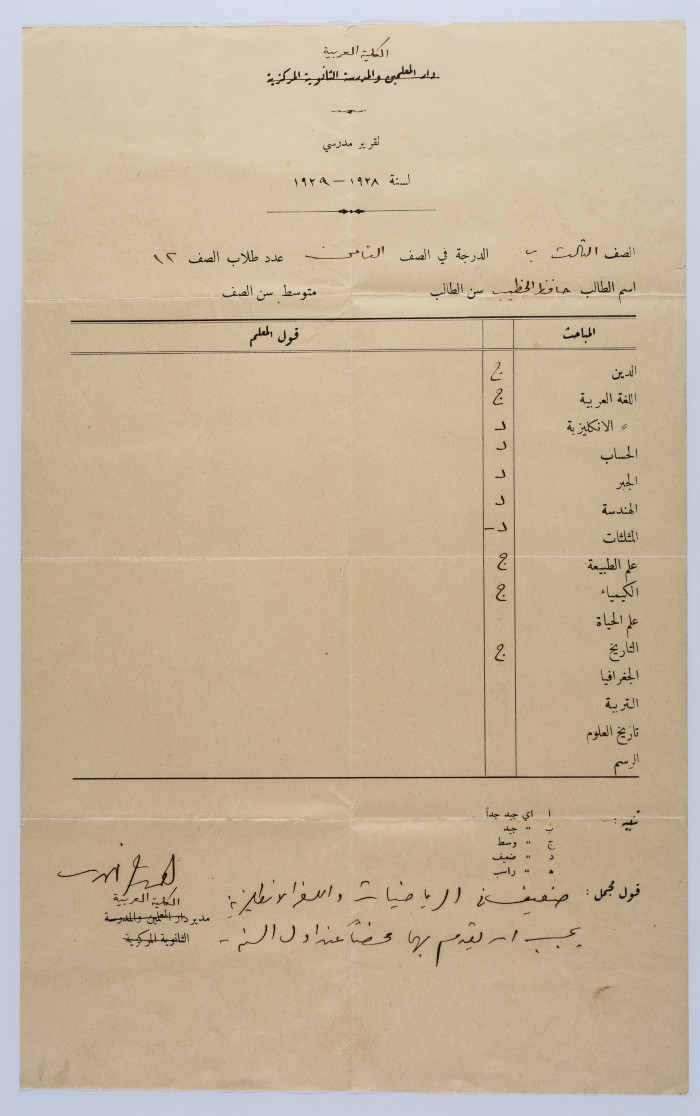 الكلية العربية
دار المعلمين والمدرسة الثانوية المركزية
تقرير مدرسي
لسنة ١٩٢٨ — ١٩٢٩
الصف الثالث ب الدرجة في الصف الثامن عدد طلاب الصف ١٢
اسم الطالب حافظ الخطيب سن الطالب متوسط سن الصف
المباحث قول المعلم
الدين ج
اللغة العربية ج
〃 الانكليزية د
الحساب د
الجبر د
الهندسة د
المثلثات د–
علم الطبيعة ج
الكيمياء ج
علم الحياة
التاريخ ج
الجغرافيا
التربية
تاريخ العلوم
الرسم
تنبيه :— ا اي جيد جداً
ب " جيد
ج " وسط
د " ضعيف
ه " راسب
قول مجمل : ضعيف في الرياضيات واللغة الانكليزية
يجب ان يتقدم بهما عند اول السنة
الكلية العربية
مدير دار المعلمين والمدرسة
الثانوية المركزية